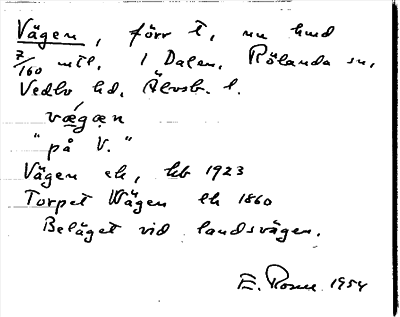 Vägen, förr t., nu hmd
7/160 mtl. i Dalen, Rölanda sn,
Vedbo hd, Älvsb. l.
vǽgæn
"på V."
Vägen ek, kb 1923
Torpet Wägen ek 1860
Beläget vid landsvägen.
E. Rosell 1954